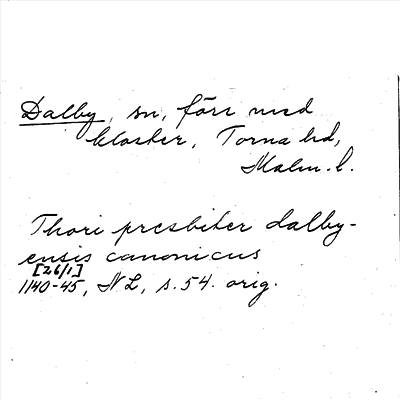 Dalby, sn, förr med
kloster, Torna hd,
Malm. l.
Thori presbiter dalby-
ensis canonicus
[26/1]
1140-45, NL, s. 54. orig.